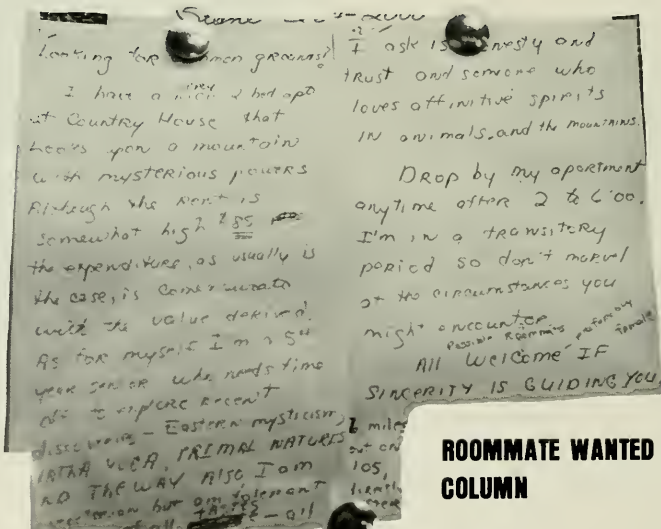 Looking for common grounds?
I have a very 2 bed apt
at Country House that
Looks upon a mountain
with mysterious powers
Although the Rent is
somewhat high $85
the expenditure, as usually is
the case, is
with the value derived.
As for myself I'm a 5th
year senior who needs time
to explore recent
discoveries - Eastern mysticism,
PRIMAL NATURES
AND THE WAY Also I am
but am tolerant
all - all
I ask is honesty and
trust and someone who
loves affinitive spirits
IN animals, and the mountains.
DROP by my apartment
anytime after 2 to 6:00.
I'm in a TRANSITORY
period so don't marvel
at the circumstances you
might encounter
Possible Roommates preferably female
All Welcome IF
SINCERITY IS GUIDING YOU,
2 miles
out on
105,
ROOMMATE WANTED
COLUMN